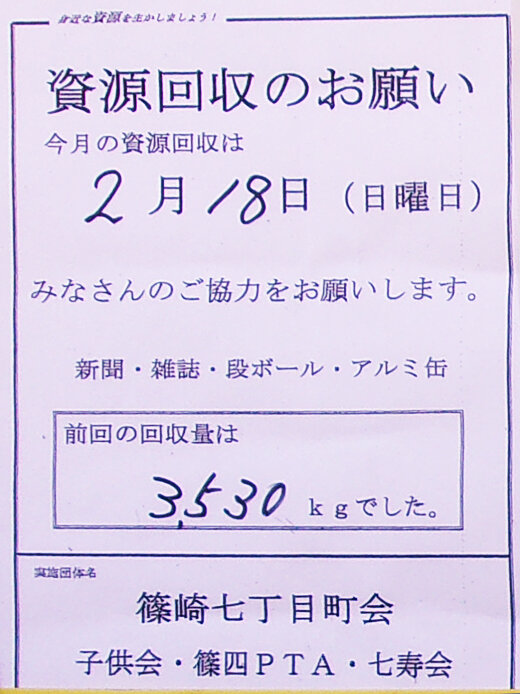 身近な資源を生かしましょう!
資源回収のお願い
今月の資源回収は
2月18日（日曜日）
みなさんのご協力をお願いします。
新聞・雑誌・段ボール・アルミ缶
前回の回収量は
3,530 kgでした。
実施団体名
篠崎七丁目町会
子供会・篠四PTA・七寿会